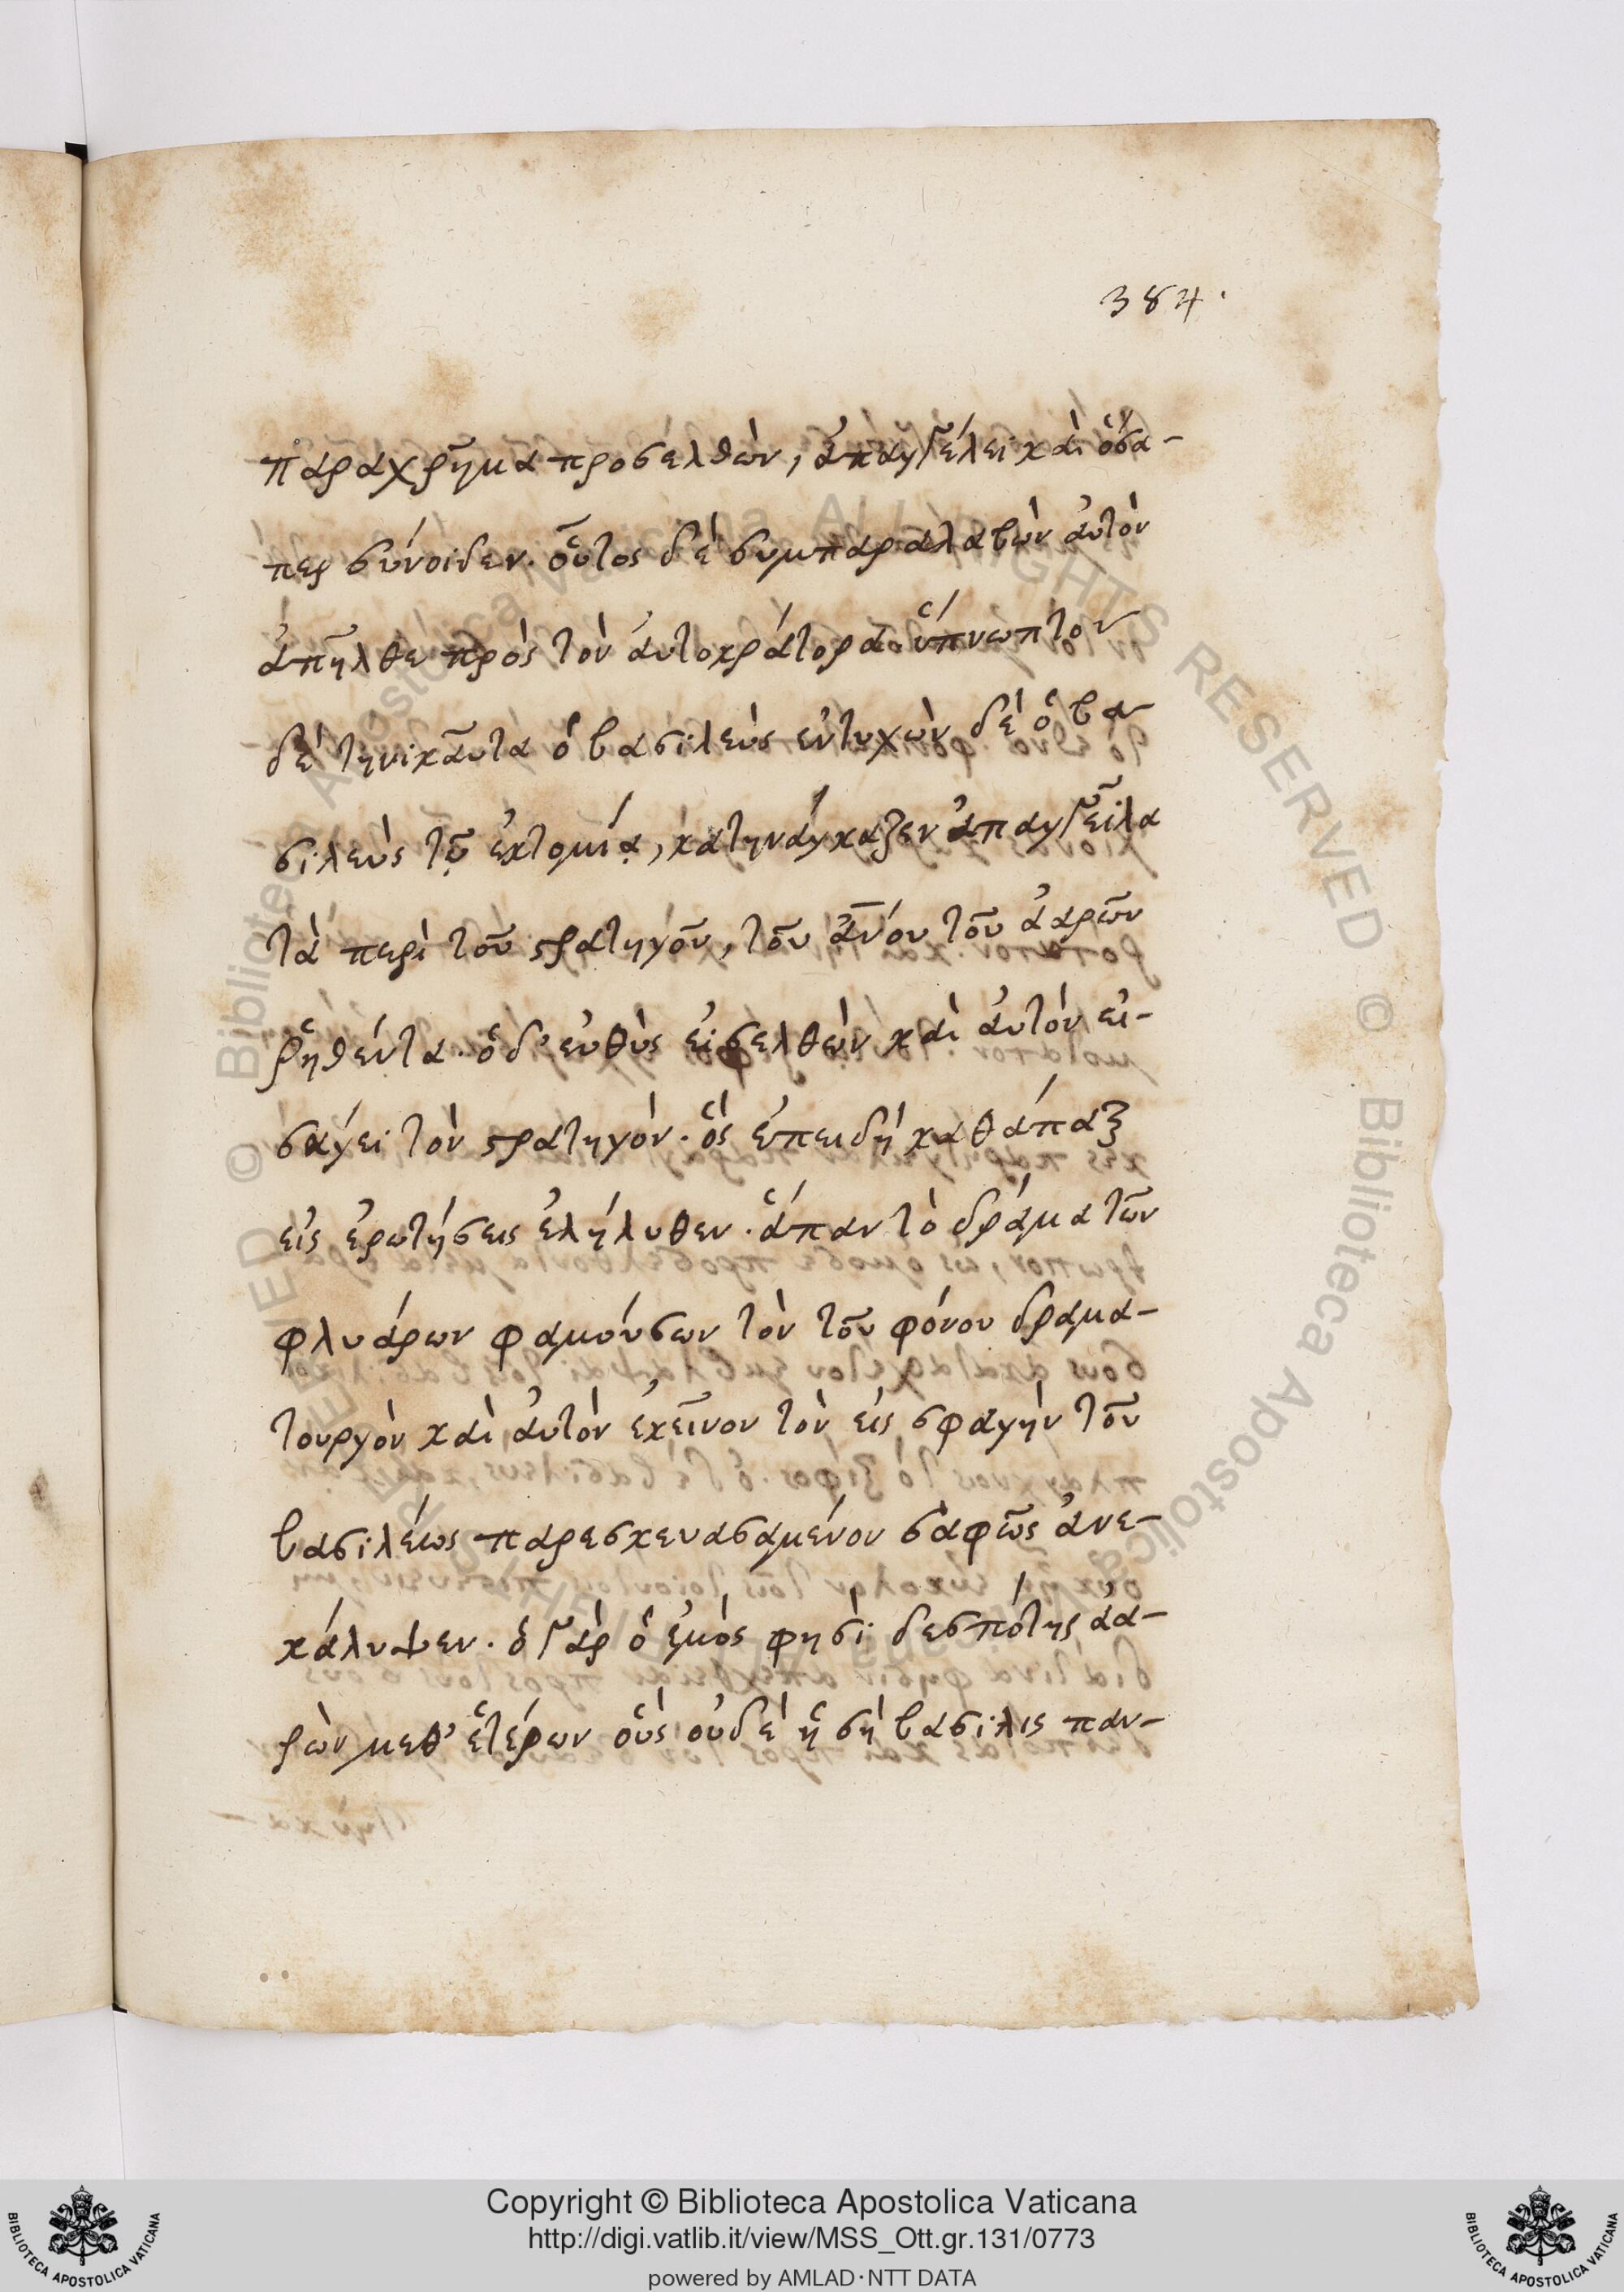 384.
παραχρῆμα προσελθὼν, ἀπαγγέλει καὶ ὅσα-
περ σύνοιδεν. οὗτος δὲ συμπαραλαβὼν αὐτὸν
ἀπῆλθε πρὸς τὸν αὐτοκράτορα. ὕπνωττον
δὲ τηνικαῦτα ὁ βασιλεὺς ἐντυχὼν δὲ ὁ βα-
σιλεὺς τῷ ἐκτομίᾳ, κατηνάγκαζεν ἀπαγγεῖλα
τὰ περὶ τοῦ στρατηγοῦ, τοῦ ἀνου τοῦ ἀαρῶν
ῥηθέντα. ὁ δ' εὐθὺς εἰσελθὼν καὶ αὐτὸν εἰ-
σάγει τὸν στρατηγόν. ὃς ἐπειδὴ καθάπαξ
εἰς ἐρωτήσεις ἐλήλυθεν. ἅπαν τὸ δράμα τῶν
φλυάρων φαμούσων τὸν τοῦ φόνου δραμα-
τουργὸν καὶ αὐτὸν ἐκεῖνον τὸν εἰς σφαγὴν τοῦ
βασιλέως παρεσκευασαμένον σαφῶς ἀνε-
κάλυψεν. ὁ γὰρ ὁ ἐμὸς φησὶ δεσπότης ἀα-
ρὼν μεθ' ἑτέρων οὓς οὐδὲ ἡ σὴ βασιλις παν-
Copyright © Biblioteca Apostolica Vaticana
http://digi.vatlib.it/view/MSS_Ott.gr.131/0773
powered by AMLAD·NTT DATA
BIBLIOTECA APOSTOLICA VATICANA
BIBLIOTECA APOSTOLICA VATICANA